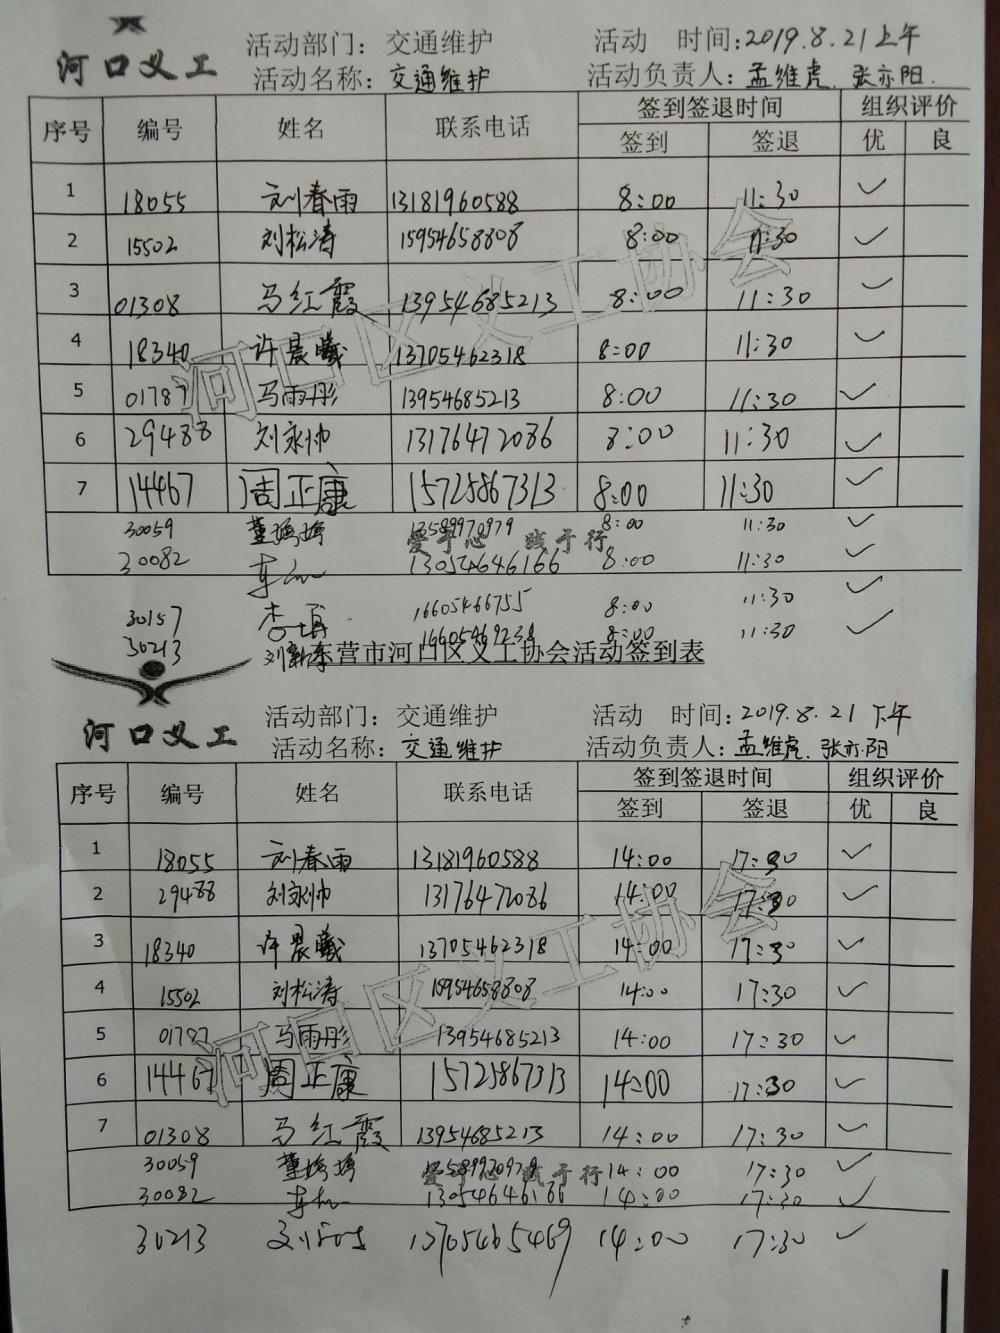 河口义工
活动部门：交通维护 活动 时间：2019.8.21上午
活动名称：交通维护 活动负责人：孟维虎、张亦阳.
序号 编号 姓名 联系电话 签到签退时间 组织评价
签到 签退 优 良
1 18055 刘春雨 13181960588 8:00 11:30 ✓
2 15502 刘松涛 15954658808 8:00 11:30 ✓
3 01308 马红霞 13954685213 8:00 11:30 ✓
4 18340 许晨曦 13705462318 8:00 11:30 ✓
5 01787 马雨彤 13954685213 8:00 11:30 ✓
6 29488 刘永帅 13176472086 8:00 11:30 ✓
7 14467 周正康 15725867313 8:00 11:30 ✓
30059 董 13589970979 8:00 11:30 ✓
爱于心 践于行
30082 车 13054646166 8:00 11:30 ✓
30157 李 16605466755 8:00 11:30 ✓
30213 刘新 8:00 11:30 ✓
河口区义工协会
东营市河口区义工协会活动签到表
河口义工
活动部门：交通维护 活动 时间：2019.8.21 下午
活动名称：交通维护 活动负责人：孟维虎、张亦阳
序号 编号 姓名 联系电话 签到签退时间 组织评价
签到 签退 优 良
1 18055 刘春雨 13181960588 14:00 17:30 ✓
2 29488 刘永帅 13176472086 14:00 17:30 ✓
3 18340 许晨曦 13705462318 14:00 17:30 ✓
4 15502 刘松涛 15954658808 14:00 17:30 ✓
5 01787 马雨彤 13954685213 14:00 17:30 ✓
6 14467 周正康 15725867313 14:00 17:30 ✓
7 01308 马红霞 13954685213 14:00 17:30 ✓
30059 董 13589970979 14:00 17:30 ✓
爱于心 践于行
30082 车 13054646166 14:00 17:30 ✓
30213 刘 13705465469 14:00 17:30 ✓
河口区义工协会